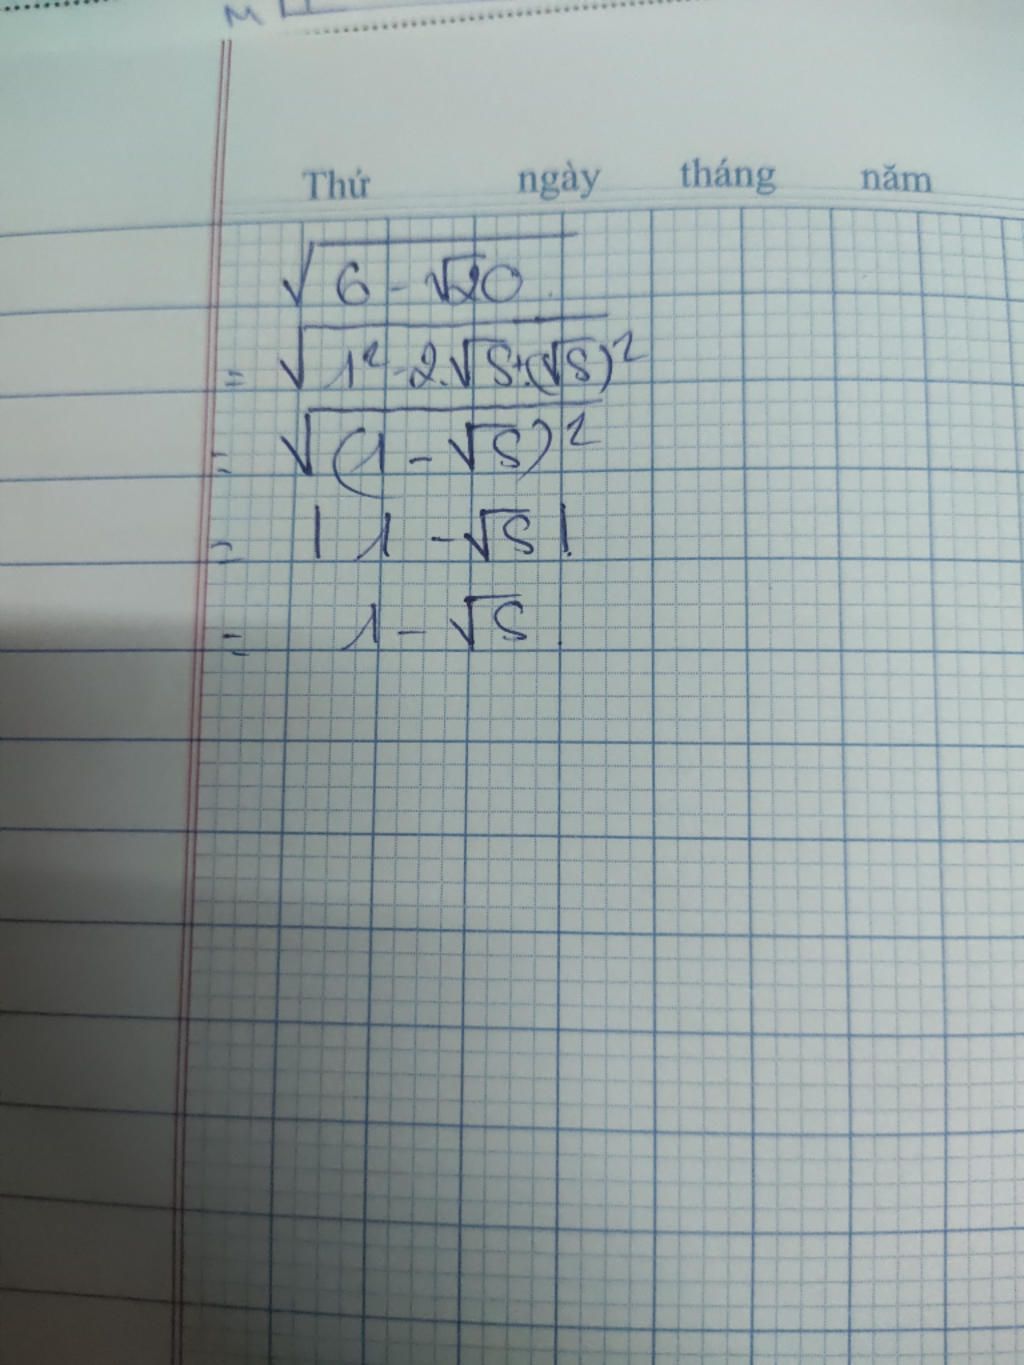 Thứ ngày tháng năm
√(6 - √20)
= √(1² - 2.√5 + (√5)²)
= √((1 - √5)²)
= |1 - √5|
= 1 - √5